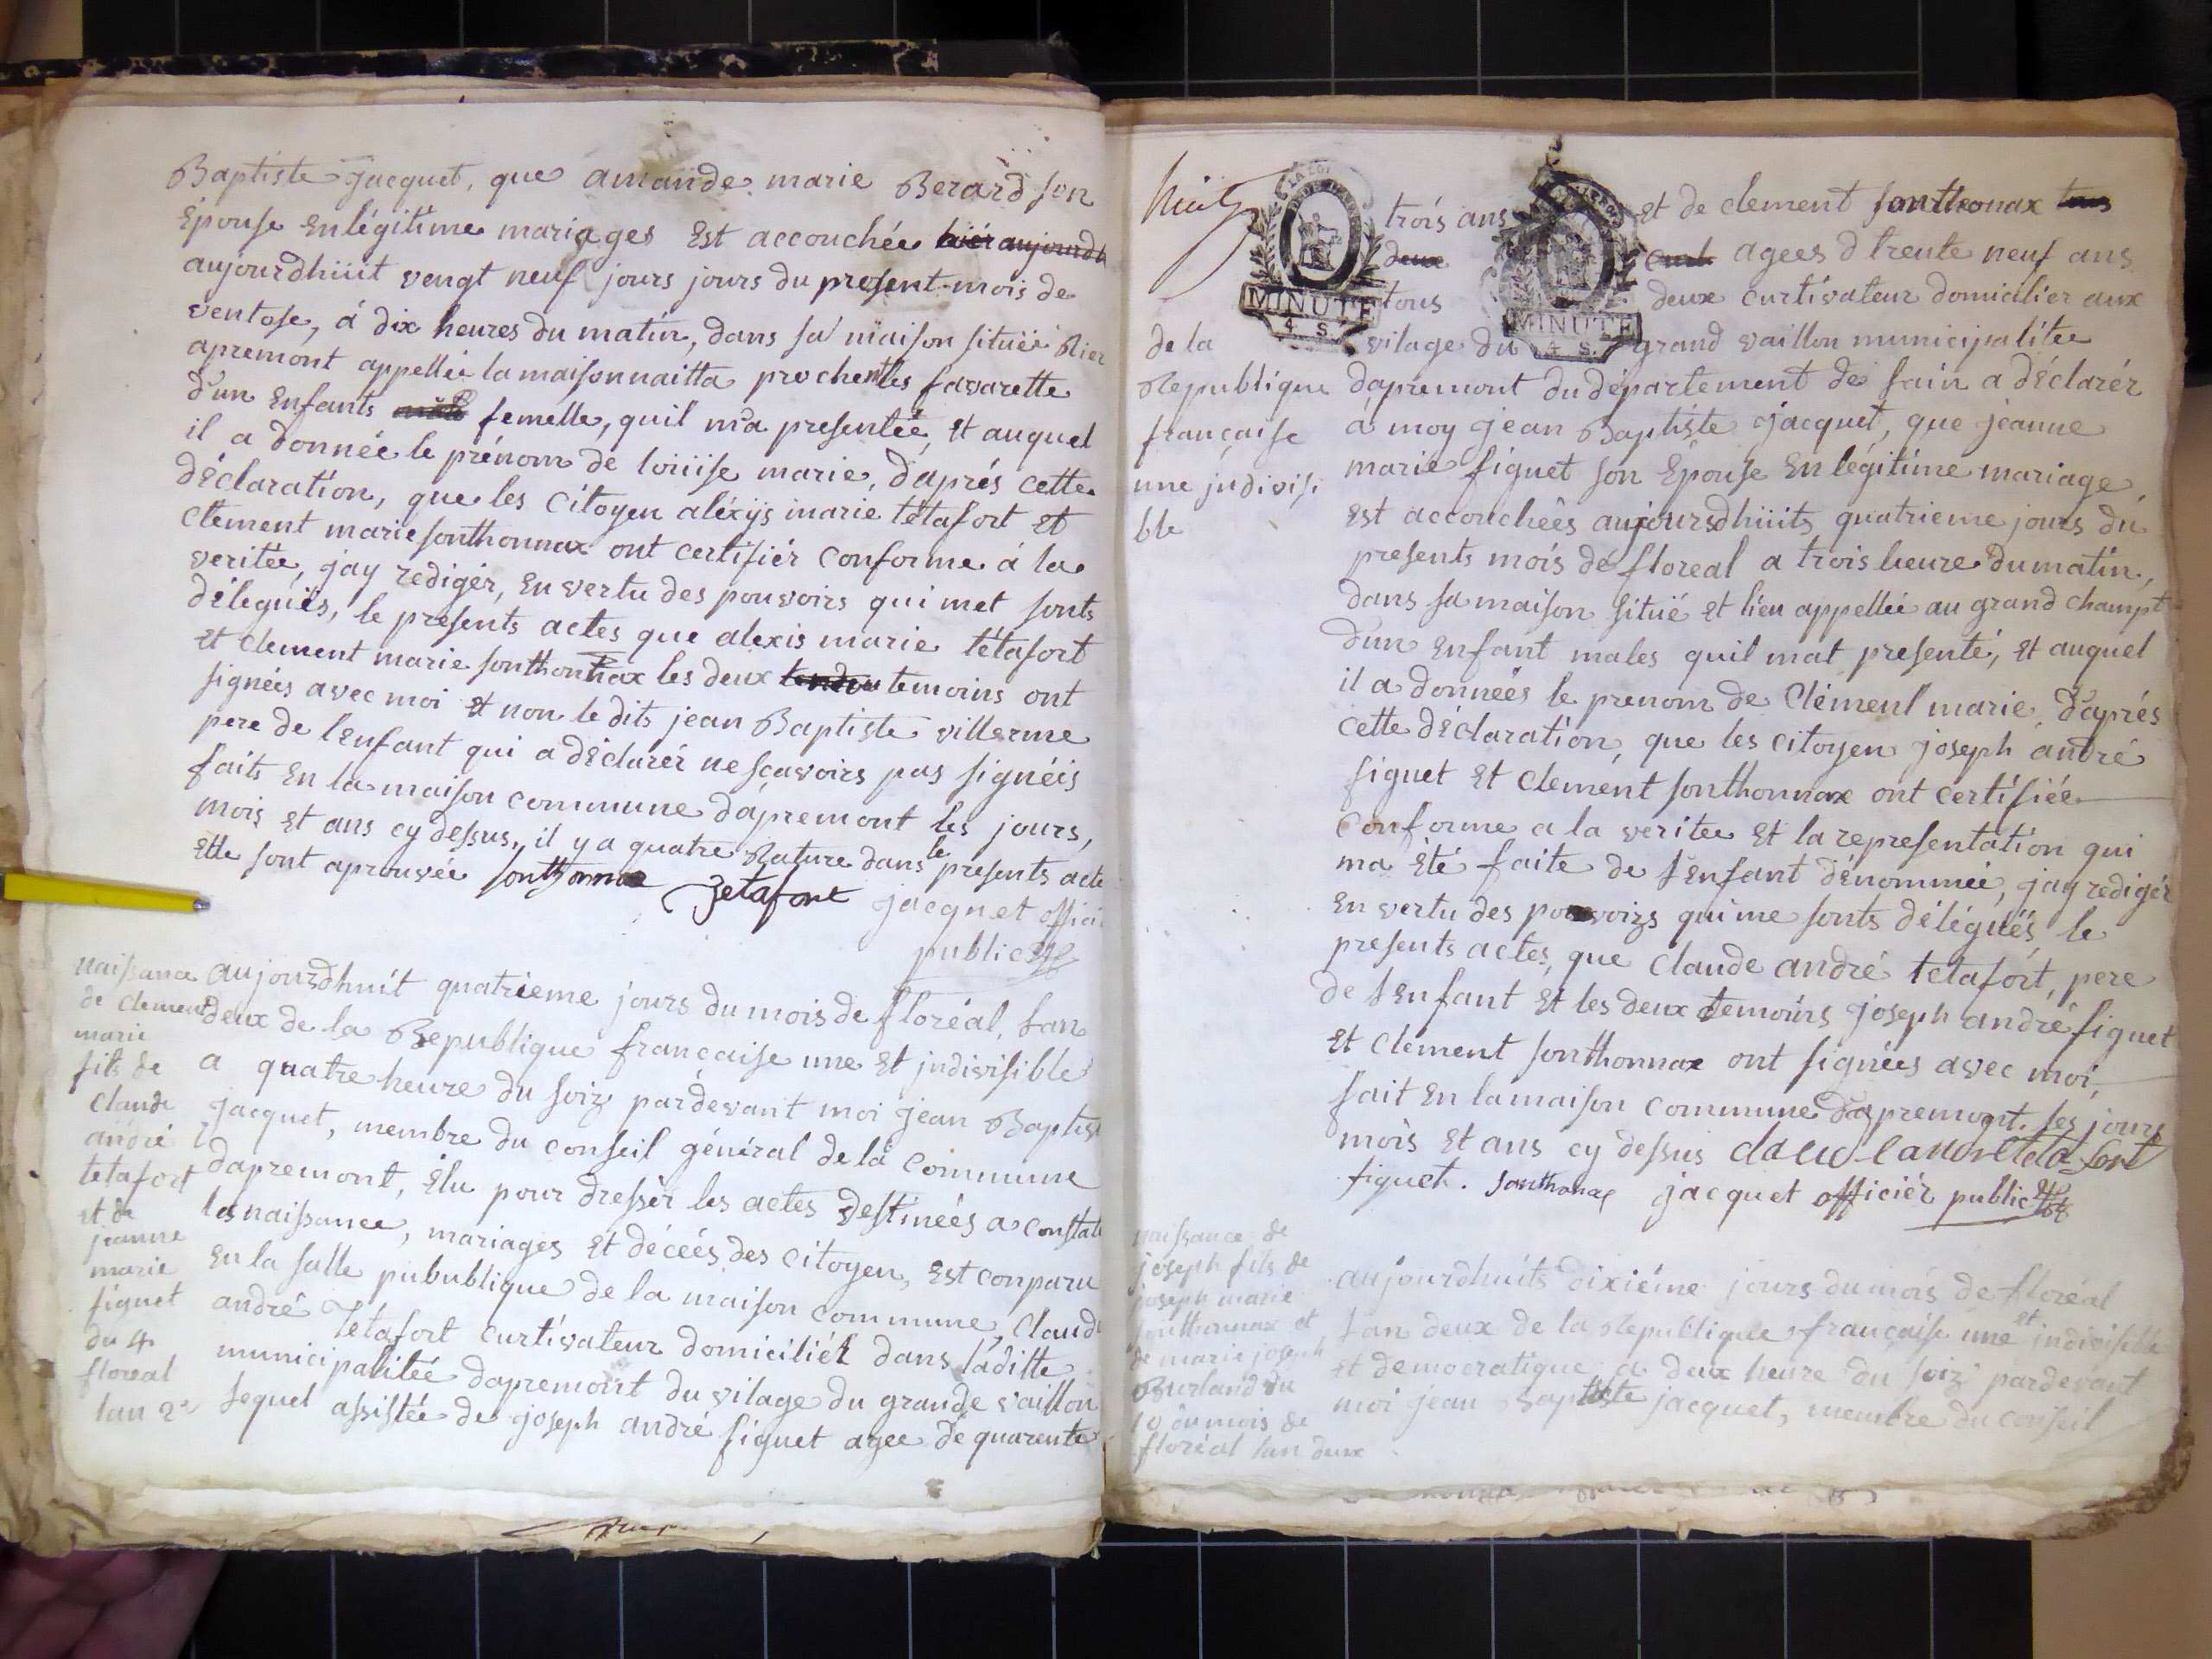 Baptiste jacquet, que amande marie Berard son
Épouse En légitime mariages Est accouchée hier aujourdh
aujourdhüit vengt neuf jours jours du present mois de
ventose, á dix heures du matin, dans sa maison située Rier
apremont appellée la maisonnaitta proche les favarette
d'un Enfants mâle femelle, quil m'a presentée, Et auquel
il a donnée le prénom de loüise marie, d'aprés cette
déclaration, que les Citoyen aléxÿs marie tétafort Et
clement marie sonthonnax ont certifiér conforme á la
veritée, jay redigér, En vertu des pouvoirs qui met sonts
déleguées, le presents actes que alexis marie tétafort
Et clement marie sonthonnax les deux temoins ont
signées avec moi Et non le dits jean Baptiste villerme
pere de lenfant qui a déclarér ne scavoirs pas signéis
faits En la maison commune dápremont les jours,
mois Et ans cy dessus, il y a quatre Rature dans le presents acte
Elle sont aprouvée sonthonnax Tetafort jacquet offici
public
naissance
de clement
marie
fils de
claude
andré
tetafort
et de
jeanne
marie
figuet
du 4
floreal
lan 2e
aujourdhuit quatrieme jours du mois de floréal, lan
deux de la Republique française une Et jndivisible
a quatre heure du soir pardevant moi jean Baptist
jacquet, membre du conseil général de la commune
dapremont, Élu pour dressér les actes destinées a constat
les naissance, mariages Et décées des citoyen, Est conparu
En la salle pubublique de la maison commune, Claude
andré Tétafort curtivateur domiciliér dans laditte
municipalitée dapremont du vilage du grande vaillon
lequel assistée de joseph andré figuet agee de quarente
trois ans et de clement sonthonax tous
deux agees d trente neuf ans
tous deux curtivateur domicilier aux
vilage du grand vaillon municipalitee
LA LOI
MINUTE
4 S.
MINUTE
4 S.
de la
Republique
française
une jndivisi
ble
dapremont du département de lain a déclarér
á moy jean Baptiste jacquet, que jeanne
marie figuet son Épouse En légitime mariage
Est accouchées aujoursdhüits quatrieme jours du
presents mois de floreal a trois heure du matin,
dans sa maison situé Et lieu appellée au grand champt
d'un Enfant males quil mat presenté, Et auquel
il a données le prenom de Clement marie, d'aprés
cette déclaration, que les citoyen joseph andré
figuet Et clement sonthonnax ont certifiée
conforme a la veritee Et la representation qui
ma été faite de lenfant dénommée, jay redigér
En vertu des pouvoirs qui me sonts délégués, le
presents actes, que claude andré tetafort, pere
de lenfant Et les deux temoins joseph andré figuet
Et clement sonthonnax ont signées avec moi,
fait En la maison commune dapremont. les jours
mois Et ans cy dessus claude andre tetafort
figuet. sonthonax jacquet officiér public
naissance de
joseph fils de
joseph marie
sonthonnax et
de marie joseph
Burland du
10 du mois de
floréal lan deux
aujourdhuits dixiéme jours du mois de floréal
lan deux de la Republique française une et jndivisible
et democratique a deux heure du soir pardevant
moi jean Baptiste jacquet, membre du conseil